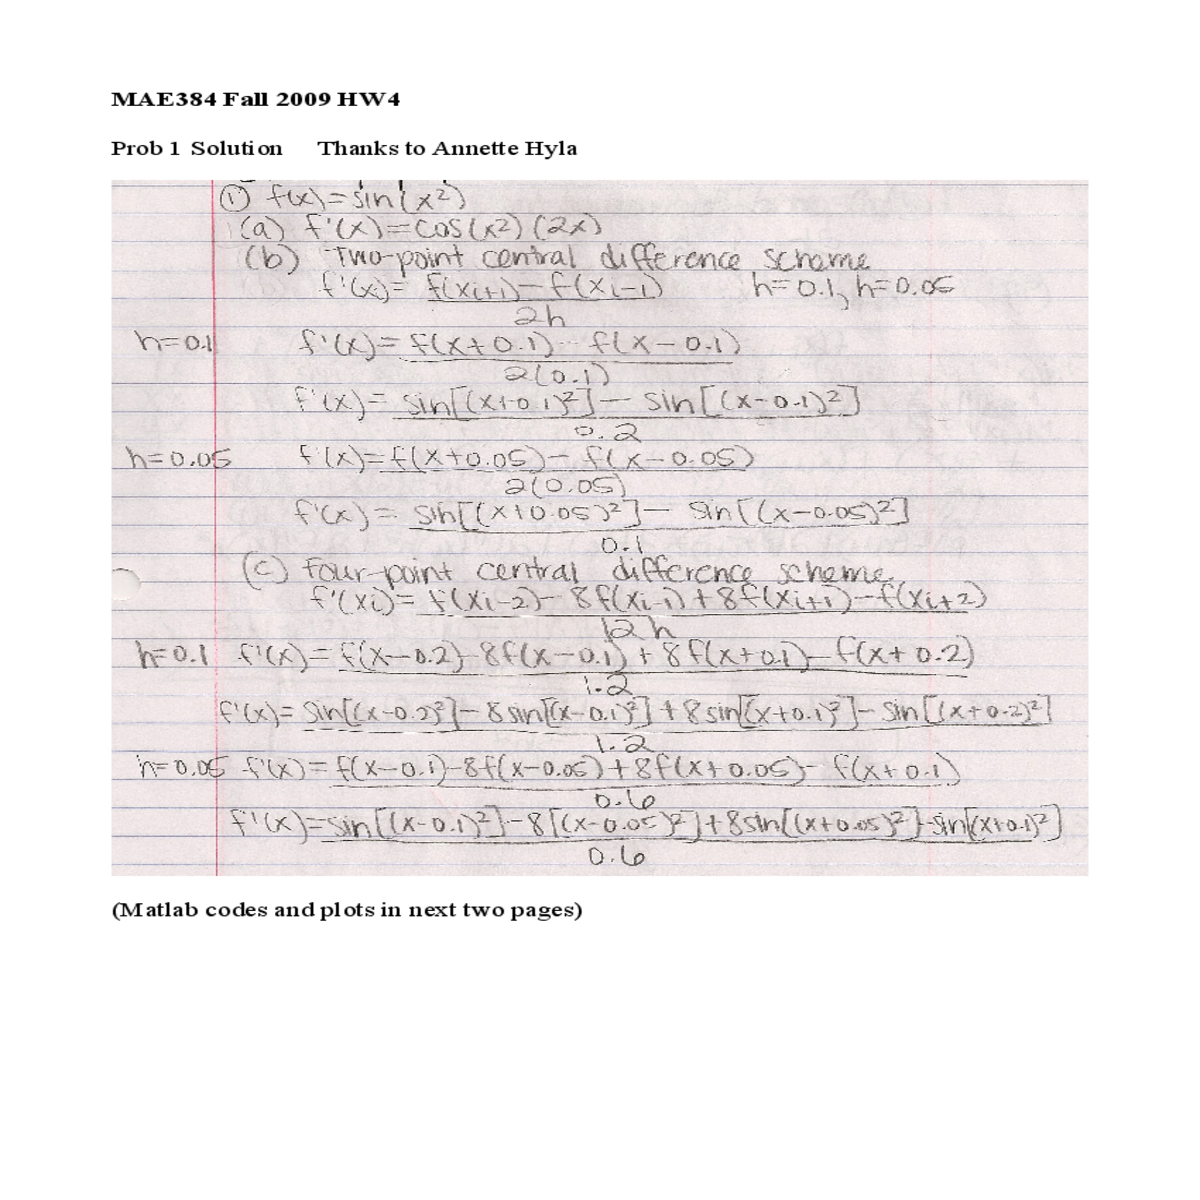 MAE384 Fall 2009 HW4
Prob 1 Solution Thanks to Annette Hyla
① f(x)=sin(x²)
(a) f'(x)=cos(x²)(2x)
(b) Two-point central difference scheme
f'(xi)= f(xi+1)-f(xi-1) h=0.1, h=0.05
2h
h=0.1 f'(x)= f(x+0.1)-f(x-0.1)
2(0.1)
f'(x)= sin[(x+0.1)²]-sin[(x-0.1)²]
0.2
h=0.05 f'(x)=f(x+0.05)-f(x-0.05)
2(0.05)
f'(x)= sin[(x+0.05)²]-sin[(x-0.05)²]
0.1
(c) four-point central difference scheme
f'(xi)= f(xi-2)-8f(xi-1)+8f(xi+1)-f(xi+2)
12h
h=0.1 f'(x)=f(x-0.2)-8f(x-0.1)+8f(x+0.1)-f(x+0.2)
1.2
f'(x)= sin[(x-0.2)²]-8sin[(x-0.1)²]+8sin[(x+0.1)²]-sin[(x+0.2)²]
1.2
h=0.05 f'(x)=f(x-0.1)-8f(x-0.05)+8f(x+0.05)-f(x+0.1)
0.6
f'(x)=sin[(x-0.1)²]-8[(x-0.05)²]+8sin[(x+0.05)²]-sin[(x+0.1)²]
0.6
(Matlab codes and plots in next two pages)